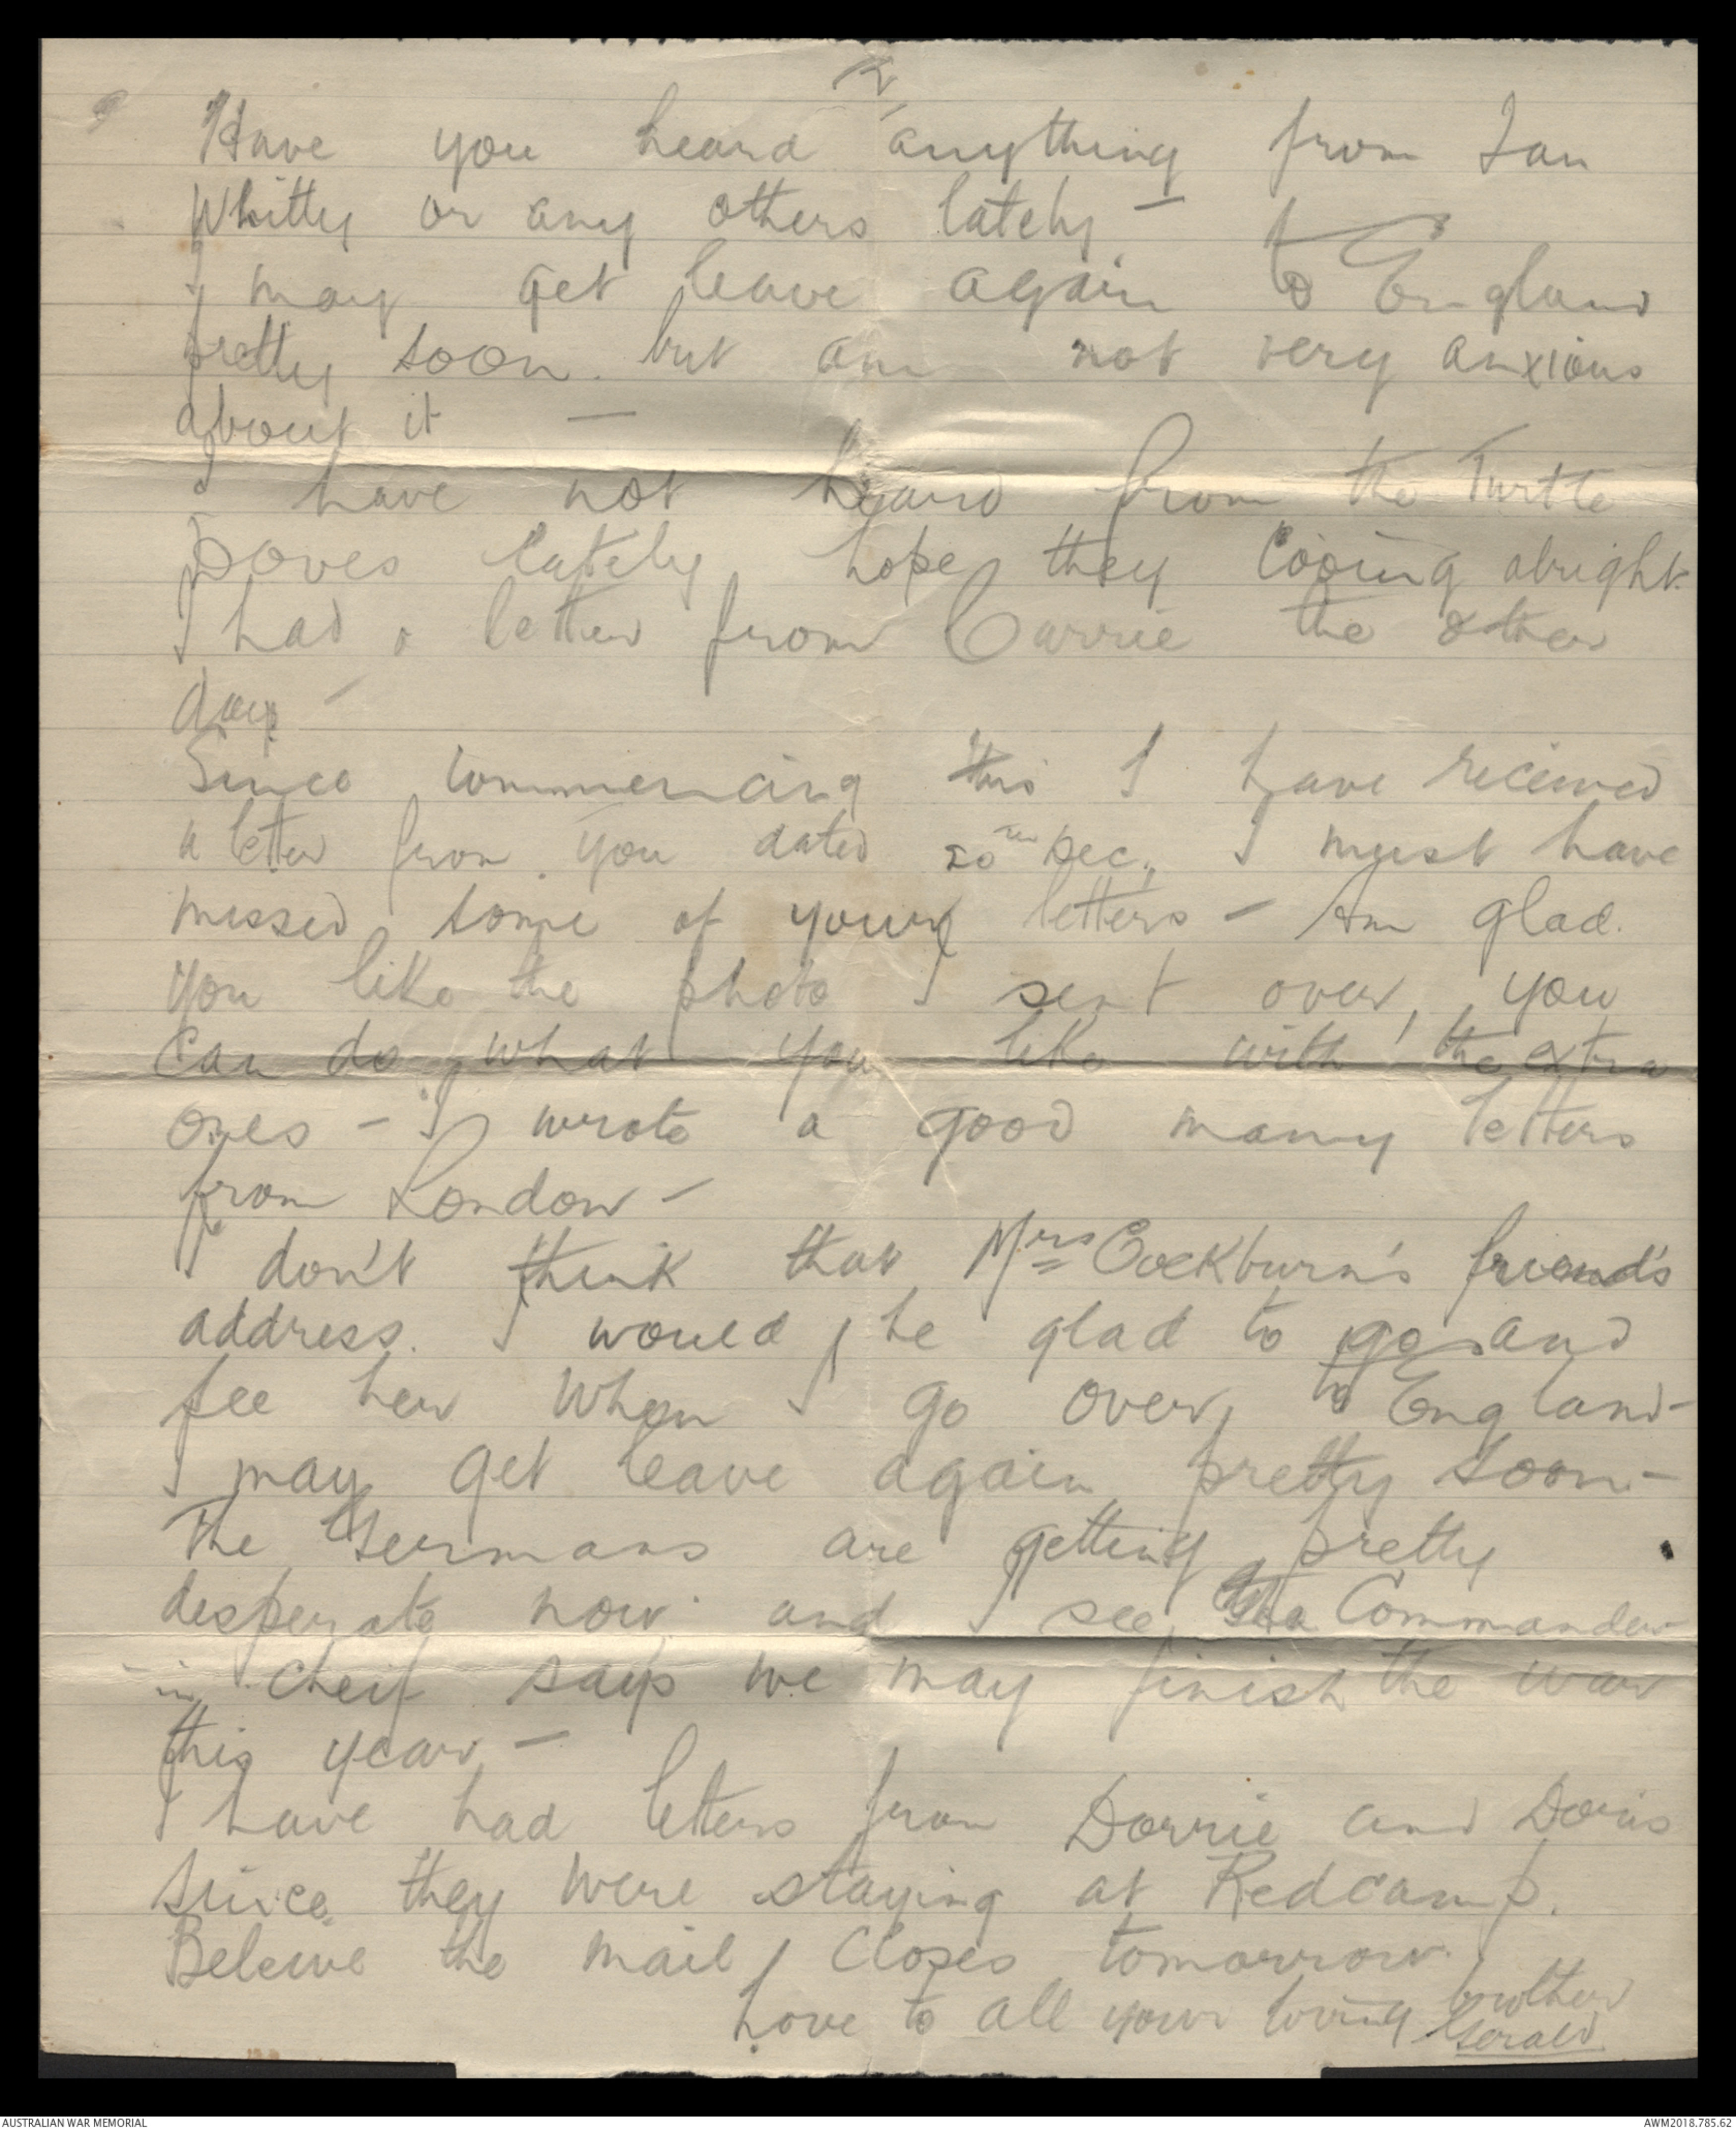 2
Have you heard anything from Ian
Whitty or any others lately –
I may get leave again to England
pretty soon. but am not very anxious
about it –
I have not heard from the Turtle
Doves lately, hope they Cooing alright.
I had a letter from Carrie the other
day –
Since commencing this I have received
a letter from you dated 20th Dec., I must have
missed some of your letters – Am glad.
you like the photo I sent over, you
can do what you like with the extra
ones – I wrote a good many letters
from London –
I don't think that Mrs Cockburn's friend's
address. I would be glad to go and
see her when I go over to England –
I may get leave again pretty soon –
The Germans are getting pretty
desperate now and I see the Commander
- in Cheif says we may finish the war
this year –
I have had letters from Dorrie and Doris
since they were staying at Redcamp.
Beleive the mail closes tomorrow.
Love to all your loving brother
Gerald.
AUSTRALIAN WAR MEMORIAL
AWM2018.785.62